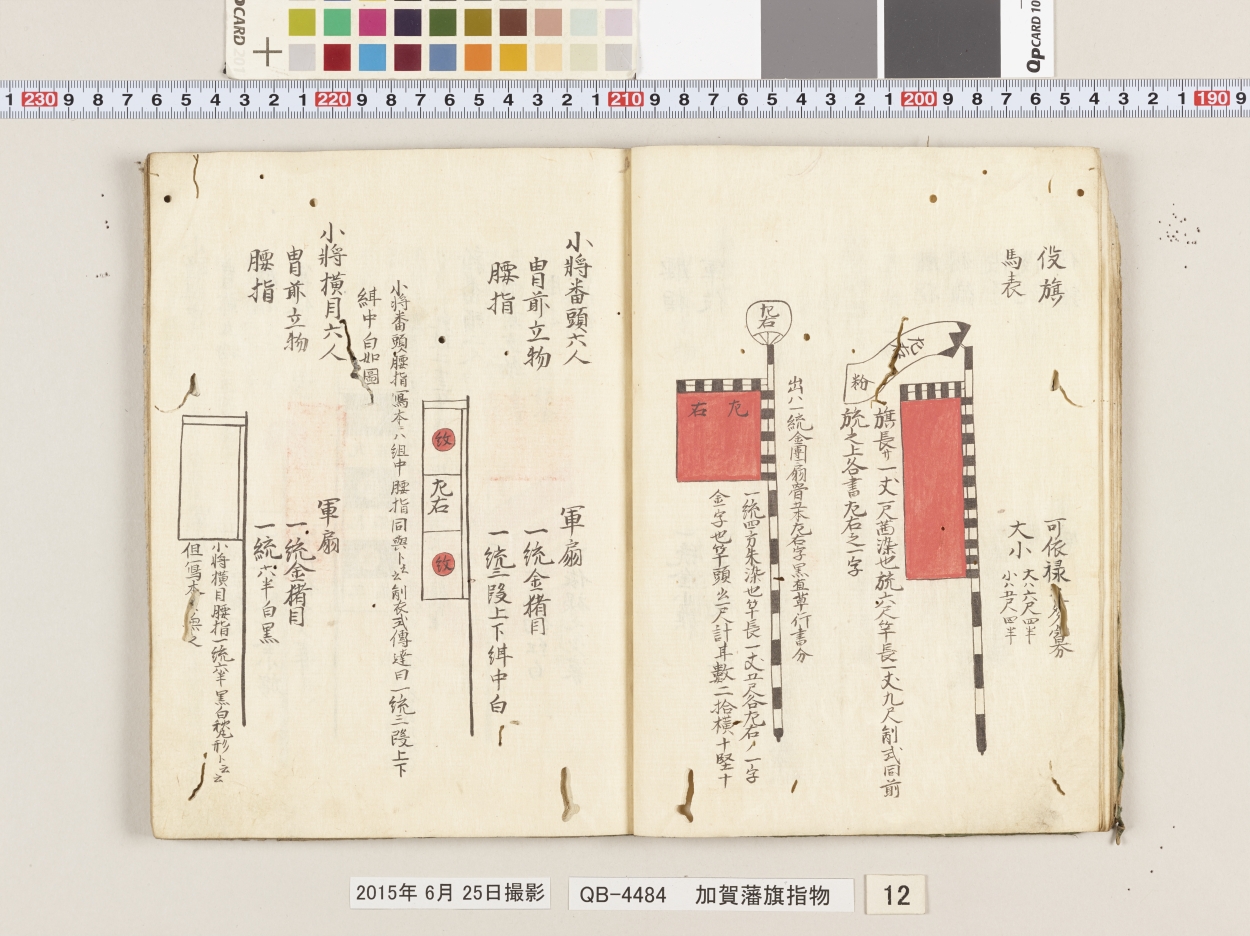 役旗
馬表
可依禄
大小
大ハ六尺四半
小ハ五尺四半
粉
旗長サ一丈一尺茜染也旒六尺竿長一丈九尺削式同前
旒之上各書左右之一字
左右
左
右
出ハ一統金團扇
一統四方朱染也竿長一丈五尺各左右ノ一字
金字也竿頭出一尺計耳數二拾横十堅十
小將番頭六人
冑前立物
腰指
軍扇
一統金
一統三段上下緋中白
紋
左右
紋
小將番頭腰指一寫本ハ組中腰指同與ト云削衣式傳達曰一統三段上下
緋中白如圖
小將横目六人
冑前立物
腰指
軍扇
一統金
一統六半白黒
小將横目腰指一統六半黒白
但一寫本
2015年 6月 25日撮影
QB-4484 加賀藩旗指物
12
QPCARD
1 230 9 8 7 6 5 4 3 2 1 220 9 8 7 6 5 4 3 2 1 210 9 8 7 6 5 4 3 2 1 200 9 8 7 6 5 4 3 2 1 190 9